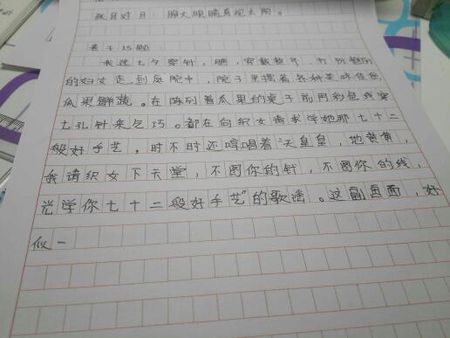 敢目对日 睁大眼睛直视太阳。
关于巧题
来选七夕穿针,晒,穿戴整齐,打扮艳丽
的妇女走到庭院中,院子里摆着各种美味佳肴,
瓜果鲜蔬。在陈列着瓜果的桌子前用彩色线穿
七孔针来乞巧。都在向织女请求学她那七十二
般好手艺。时不时还哼唱着“天皇皇,地黄黄,
我请织女下云堂,不图你的针,不图你的线,
光学你七十二般好手艺”的歌谣。这副画面,好
似一